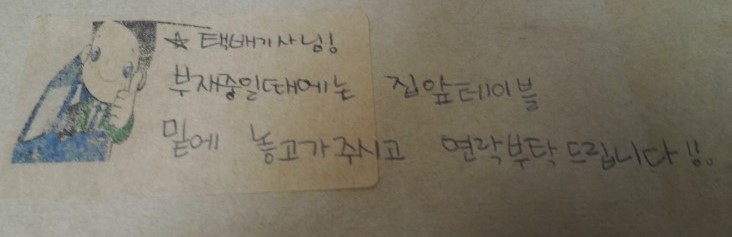 ☆ 택배기사님!
부재중일때에는 집앞테이블
밑에 놓고가주시고 연락부탁드립니다!!